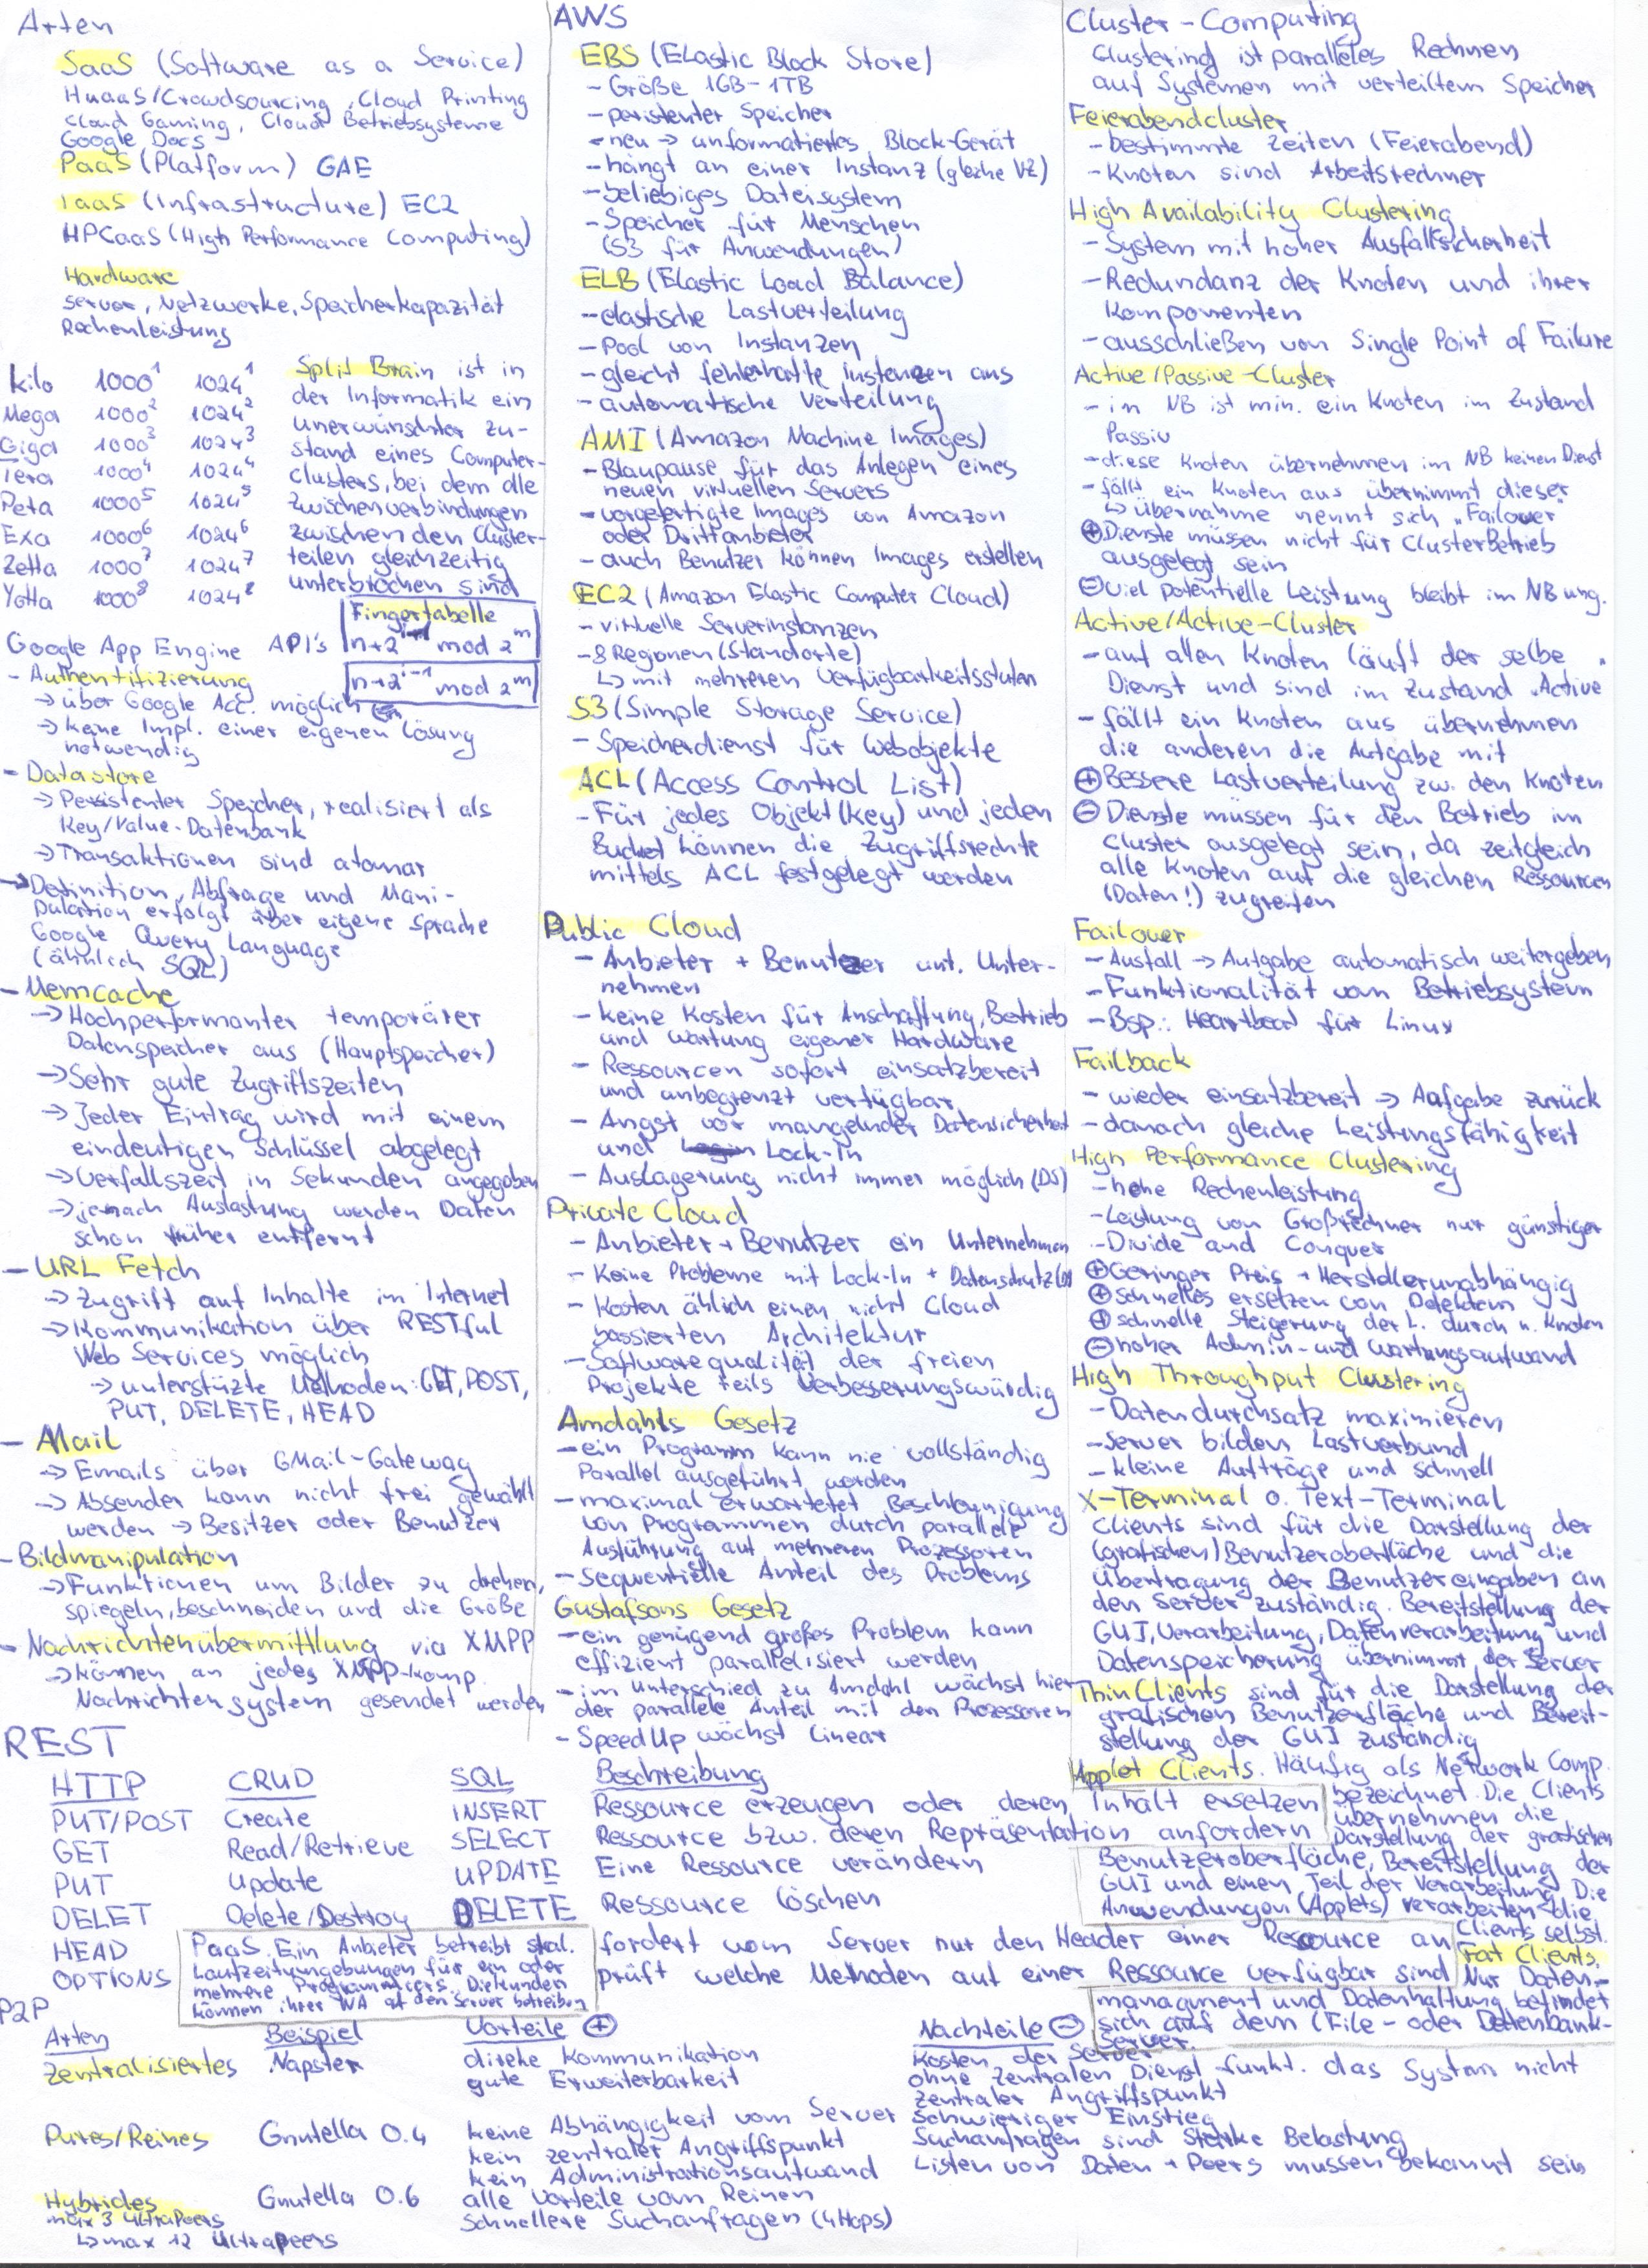 Arten
SaaS (Software as a Service)
HuaaS/Crowdsourcing, Cloud Printing
Cloud Gaming, Cloud Betriebsysteme
Google Docs
PaaS (Platform) GAE
IaaS (Infrastructure) EC2
HPCaaS (High Performance Computing)
Hardware
Server, Netzwerke, Speicherkapazität
Rechenleistung
Kilo 1000^1 1024^1
Mega 1000^2 1024^2
Giga 1000^3 1024^3
Tera 1000^4 1024^4
Peta 1000^5 1024^5
Exa 1000^6 1024^6
Zetta 1000^7 1024^7
Yotta 1000^8 1024^8
Split Brain ist in
der Informatik ein
unerwünschter Zu-
stand eines Computer-
Clusters, bei dem alle
Zwischenverbindungen
zwischen den Cluster-
teilen gleichzeitig
unterbrochen sind
Fingertabelle
n+2 mod 2^m
n+2^i-1 mod 2^m
Google App Engine API's
- Authentifizierung
→ über Google Acc. möglich
→ keine Impl. einer eigenen Lösung
notwendig
- Datastore
→ Persistenter Speicher, realisiert als
Key/Value-Datenbank
→ Transaktionen sind atomar
→ Definition, Abfrage und Mani-
pulation erfolgt über eigene Sprache
Google Query Language
(ähnlich SQL)
- Memcache
→ Hochperformanter temporärer
Datenspeicher aus (Hauptspeicher)
→ Sehr gute Zugriffszeiten
→ Jeder Eintrag wird mit einem
eindeutigen Schlüssel abgelegt
→ Verfallszeit in Sekunden angegeben
→ jenach Auslastung werden Daten
schon früher entfernt
- URL Fetch
→ Zugriff auf Inhalte im Internet
→ Kommunikation über RESTful
Web Services möglich
→ unterstüzte Methoden: GET, POST,
PUT, DELETE, HEAD
- Mail
→ Emails über GMail-Gateway
→ Absender kann nicht frei gewählt
werden → Besitzer oder Benutzer
- Bildmanipulation
→ Funktionen um Bilder zu drehen,
spiegeln, beschneiden und die Größe
- Nachrichtenübermittlung via XMPP
→ können an jedes XMPP-komp.
Nachrichtensystem gesendet werden
AWS
EBS (Elastic Block Store)
- Größe 1GB-1TB
- peristenter Speicher
- neu → unformatiertes Block-Gerät
- hängt an einer Instanz (gleiche VZ)
- beliebiges Dateisystem
- Speicher für Menschen
(S3 für Anwendungen)
ELB (Elastic Load Balance)
- elastische Lastverteilung
- Pool von Instanzen
- gleicht fehlerhafte Instanzen aus
- automatische Verteilung
AMI (Amazon Machine Images)
- Blaupause für das Anlegen eines
neuen virtuellen Servers
- vorgefertigte Images von Amazon
oder Drittanbieter
- auch Benutzer können Images erstellen
EC2 (Amazon Elastic Computer Cloud)
- virtuelle Serverinstanzen
- 8 Regionen (Standorte)
↳ mit mehreren Verfügbarkeitsstufen
S3 (Simple Storage Service)
- Speicherdienst für Webobjekte
ACL (Access Control List)
- Für jedes Objekt (Key) und jeden
Bucket können die Zugriffsrechte
mittels ACL festgelegt werden
Public Cloud
- Anbieter + Benutzer unt. Unter-
nehmen
- keine Kosten für Anschaffung, Betrieb
und Wartung eigener Hardware
- Ressourcen sofort einsatzbereit
und unbegrenzt verfügbar
- Angst vor mangelnder Datensicherheit
und Lock-In
- Auslagerung nicht immer möglich (DS)
Private Cloud
- Anbieter + Benutzer ein Unternehmen
- Keine Probleme mit Lock-In + Datenschutz (DS)
- Kosten ählich einen nicht Cloud
bassierten Architektur
- Softwarequalität der freien
Projekte teils verbesserungswürdig
Amdahls Gesetz
- ein Programm kann nie vollständig
Parallel ausgeführt werden
- maximal erwartetet Beschleunigung
von Programmen durch parallele
Ausführung auf mehreren Prozessoren
- sequentielle Anteil des Problems
Gustafsons Gesetz
- ein genügend großes Problem kann
effizient parallelisiert werden
- im Unterschied zu Amdahl wächst hier
der parallele Anteil mit den Prozessoren
- SpeedUp wächst linear
Cluster-Computing
Clustering ist paralleles Rechnen
auf Systemen mit verteiltem Speicher
Feierabendcluster
- bestimmte Zeiten (Feierabend)
- Knoten sind Arbeitsrechner
High Availability Clustering
- System mit hoher Ausfallsicherheit
- Redundanz der Knoten und ihrer
Komponenten
- ausschließen von Single Point of Failure
Active/Passive-Cluster
- im NB ist min. ein Knoten im Zustand
Passiv
- diese Knoten übernehmen im NB keinen Dienst
- fällt ein Knoten aus übernimmt dieser
↳ übernahme nennt sich „Failover"
⊕ Dienste müssen nicht für Clusterbetrieb
ausgelegt sein
⊖ viel potentielle Leistung bleibt im NB ung.
Active/Active-Cluster
- auf allen Knoten läuft der selbe
Dienst und sind im Zustand „Active"
- fällt ein Knoten aus übernehmen
die anderen die Aufgabe mit
⊕ Bessere Lastverteilung zw. den Knoten
⊖ Dienste müssen für den Betrieb im
Cluster ausgelegt sein, da zeitgleich
alle Knoten auf die gleichen Ressourcen
(Daten!) zugreifen
Failover
- Ausfall → Aufgabe automatisch weitergeben
- Funktionalität vom Betriebsystem
- Bsp.: Heartbeat für Linux
Failback
- wieder einsatzbereit → Aufgabe zurück
- danach gleiche Leistungsfähigkeit
High Performance Clustering
- hohe Rechenleistung
- Leistung von Großrechner nur günstiger
- Divide and Conquer
⊕ Geringer Preis + Herstellerunabhängig
⊕ schnelles ersetzen von Defekten
⊕ schnelle Steigerung der L. durch n. Knoten
⊖ hoher Admin- und Wartungsaufwand
High Throughput Clustering
- Datendurchsatz maximieren
- Server bilden Lastverbund
- kleine Aufträge und schnell
X-Terminal o. Text-Terminal
Clients sind für die Darstellung der
(grafischen) Benutzeroberfläche und die
Übertragung der Benutzereingaben an
den Server zuständig. Bereitstellung der
GUI, Verarbeitung, Datenverarbeitung und
Datenspeicherung übernimmt der Server
Thin Clients sind für die Darstellung der
grafischen Benutzerfläche und Bereit-
stellung der GUI zuständig
Applet Clients. Häufig als Network Comp.
bezeichnet. Die Clients
übernehmen die
Darstellung der grafischen
Benutzeroberfläche, Bereitstellung der
GUI und einen Teil der Verarbeitung. Die
Anwendungen (Applets) verarbeiten die
Clients selbst.
Fat Clients.
Nur Daten-
managment und Datenhaltung befindet
sich auf dem (File- oder Datenbank-
Server.
REST
HTTP CRUD SQL Beschreibung
PUT/POST Create INSERT Ressource erzeugen oder deren Inhalt ersetzen
GET Read/Retrieve SELECT Ressource bzw. deren Repräsentation anfordern
PUT Update UPDATE Eine Ressource verändern
DELET Delete/Destroy DELETE Ressource löschen
HEAD fordert vom Server nur den Header einer Ressource an
OPTIONS prüft welche Methoden auf einer Ressource verfügbar sind
PaaS. Ein Anbieter betreibt skal.
Laufzeitumgebungen für ein oder
mehrere Programmiers. Die Kunden
können ihrer WA auf den Server betreiben
P2P
Arten Beispiel Vorteile ⊕ Nachteile ⊖
Zentralisiertes Napster direke Kommunikation
gute Erweiterbarkeit
Kosten der Server
ohne zentralen Dienst funkt. das System nicht
zentraler Angriffspunkt
Pures/Reines Gnutella 0.4 keine Abhängigkeit vom Server
kein zentraler Angriffspunkt
kein Administrationsaufwand
Schwieriger Einstieg
Suchanfragen sind starke Belastung
Listen von Daten + Peers mussen bekannt sein
Hybrides Gnutella 0.6 alle Vorteile vom Reinen
max 3 UltraPeers schnellere Suchanfragen (4 Hops)
↳ max 12 Ultrapeers